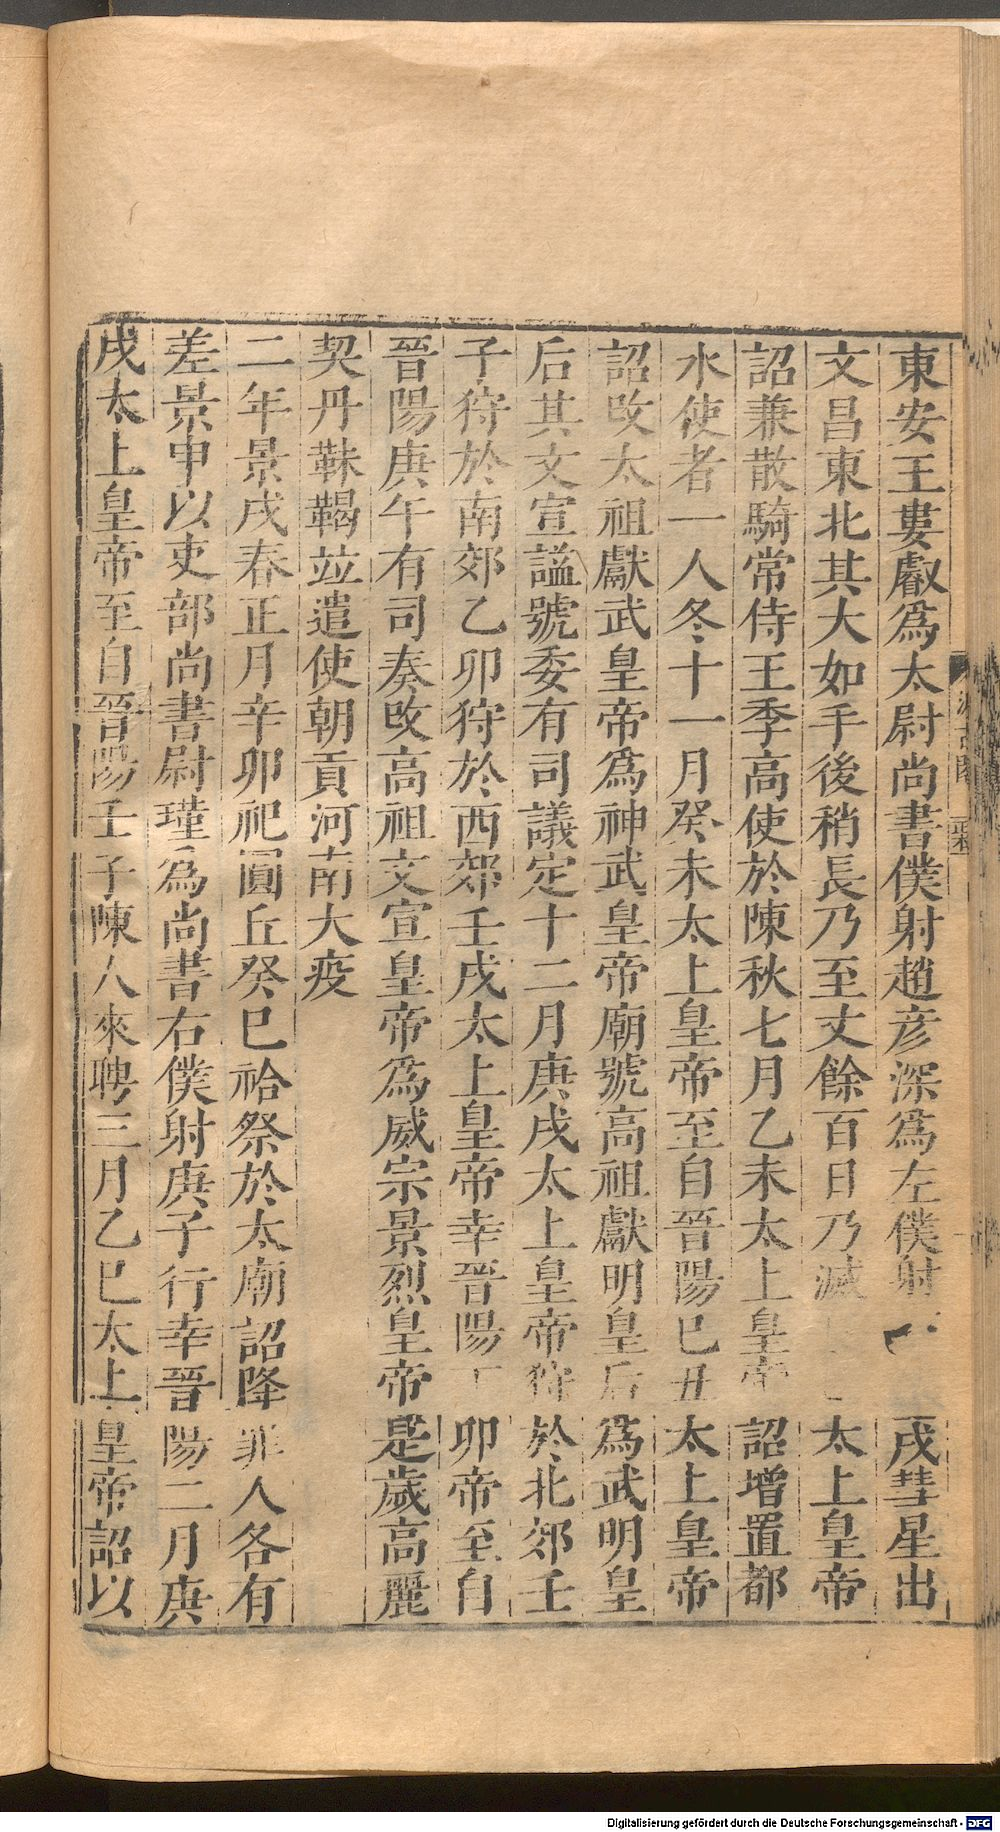 東安王婁叡爲太尉尚書僕射趙彦深爲左僕射戌彗星出
文昌東北其大如手後稍長乃至丈餘百日乃滅太上皇帝
詔兼散騎常侍王季高使於陳秋七月乙未太上皇帝詔增置都
水使者一人冬十一月癸未太上皇帝至自晉陽已丑太上皇帝
詔改太祖獻武皇帝爲神武皇帝廟號高祖獻明皇后爲武明皇
后其文宣謚號委有司議定十二月庚戌太上皇帝狩於北郊壬
子狩於南郊乙卯狩於西郊壬戌太上皇帝幸晉陽丁卯帝至自
晉陽庚午有司奏改高祖文宣皇帝爲威宗景烈皇帝是歲高麗
契丹靺鞨竝遣使朝貢河南大疫
二年景戌春正月辛卯祀圓丘癸巳祫祭於太廟詔降罪人各有
差景申以吏部尚書尉瑾爲尚書右僕射庚子行幸晉陽二月庚
戌太上皇帝至自晉陽壬子陳人來聘三月乙巳太上皇帝詔以
Digitalisierung gefördert durch die Deutsche Forschungsgemeinschaft - DFG